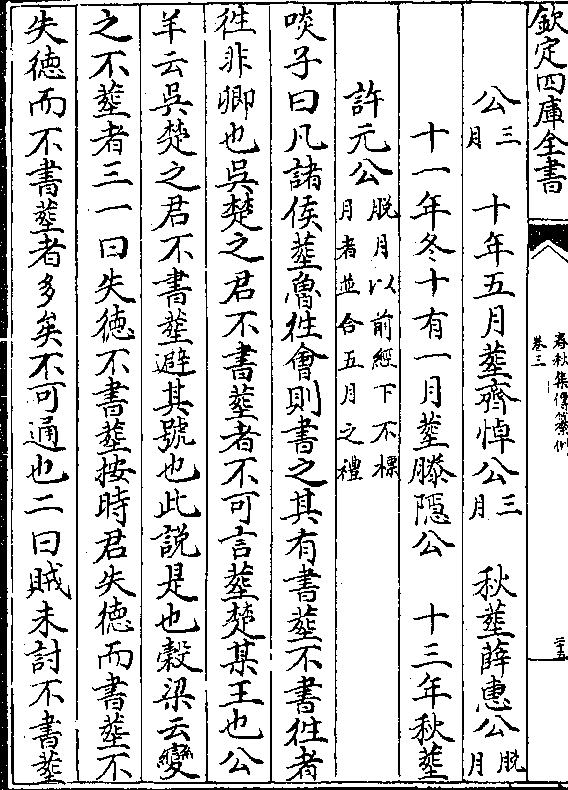 欽定四庫全書
春秋集傳纂例
卷三
二十五
公三月 十年五月塟齊悼公三月 秋塟薛惠公脱月
十一年冬十有一月塟滕隱公 十三年秋塟
許元公脱月以前經下不標月者並合五月之禮
啖子曰凡諸侯塟魯徃會則書之其有書塟不書徃者
徃非卿也吳楚之君不書塟者不可言塟楚某王也公
羊云吳楚之君不書塟避其號也此説是也穀梁云變
之不塟者三一曰失徳不書塟按時君失徳而書塟不
失徳而不書塟者多矣不可通也二曰賊未討不書塟